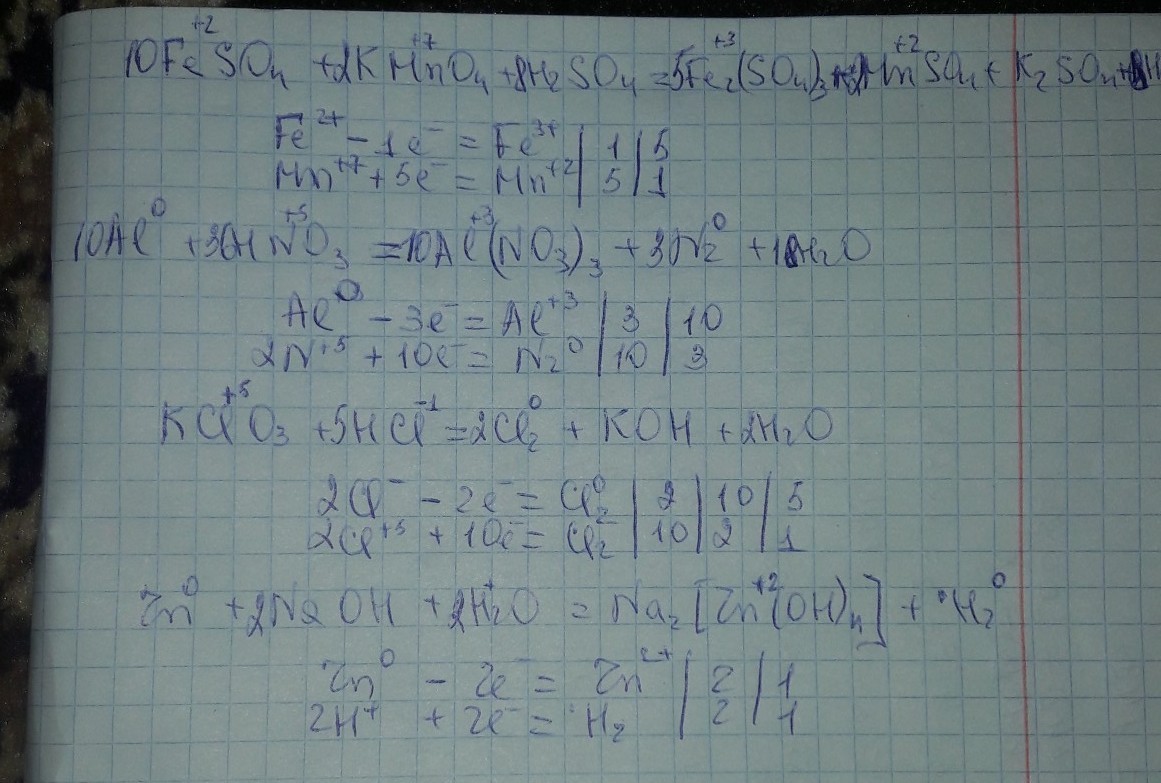 10Fe⁺²SO₄ + 2KMn⁺⁷O₄ + 8H₂SO₄ = 5Fe₂⁺³(SO₄)₃ + 2Mn⁺²SO₄ + K₂SO₄ + 8H
Fe²⁺ - 1e⁻ = Fe³⁺ | 1 | 5
Mn⁺⁷ + 5e⁻ = Mn⁺² | 5 | 1
10Al⁰ + 36HN⁺⁵O₃ = 10Al⁺³(NO₃)₃ + 3N₂⁰ + 18H₂O
Al⁰ - 3e⁻ = Al⁺³ | 3 | 10
2N⁺⁵ + 10e⁻ = N₂⁰ | 10 | 3
KCl⁺⁵O₃ + 5HCl⁻¹ = 2Cl₂⁰ + KOH + 2H₂O
2Cl⁻ - 2e⁻ = Cl₂⁰ | 2 | 10 | 5
2Cl⁺⁵ + 10e⁻ = Cl₂ | 10 | 2 | 1
Zn⁰ + 2NaOH + 2H₂⁺O = Na₂[Zn⁺²(OH)₄] + H₂⁰
Zn⁰ - 2e⁻ = Zn²⁺ | 2 | 1
2H⁺ + 2e⁻ = H₂ | 2 | 1